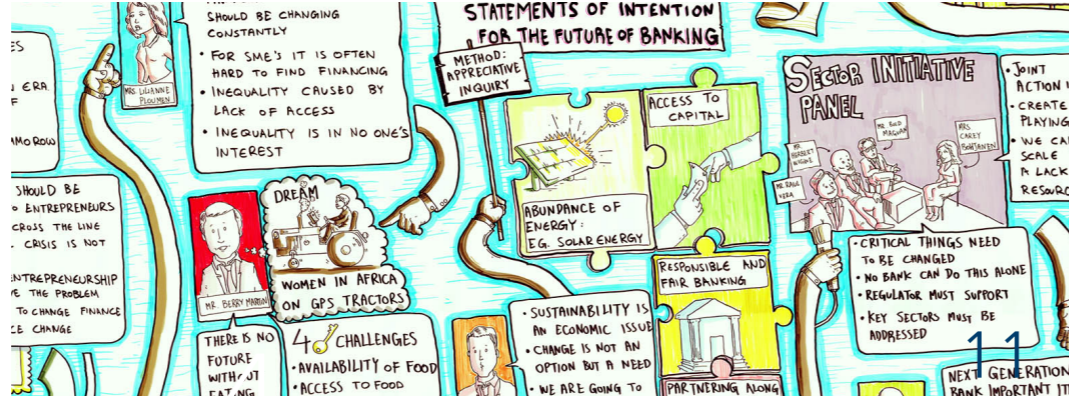 ES
N ERA
F
AMOROW
SHOULD BE
ENTREPRENEURS
CROSS THE LINE
CRISIS IS NOT
ENTREPRENEURSHIP
THE PROBLEM
TO CHANGE FINANCE
CE CHANGE
MRS. LILIANNE
PLOUMEN
SHOULD BE CHANGING
CONSTANTLY
• FOR SME'S IT IS OFTEN
HARD TO FIND FINANCING
• INEQUALITY CAUSED BY
LACK OF ACCESS
• INEQUALITY IS IN NO ONE'S
INTEREST
MR. BERRY MARTIN
DREAM
WOMEN IN AFRICA
ON GPS TRACTORS
THERE IS NO
FUTURE
WITHOUT
EATING
4 CHALLENGES
• AVAILABILITY OF FOOD
• ACCESS TO FOOD
STATEMENTS OF INTENTION
FOR THE FUTURE OF BANKING
METHOD:
APPRECIATIVE
INQUIRY
ABUNDANCE OF
ENERGY:
EG. SOLAR ENERGY
ACCESS TO
CAPITAL
RESPONSIBLE AND
FAIR BANKING
PARTNERING ALONG
• SUSTAINABILITY IS
AN ECONOMIC ISSUE
• CHANGE IS NOT AN
OPTION BUT A NEED
• WE ARE GOING TO
SECTOR INITIATIVE
PANEL
MR
MR
MR RUUD
MRS.
CAREY
• JOINT
ACTION
• CREATE
PLAYING
• WE CA
SCALE
A LACK
RESOURC
• CRITICAL THINGS NEED
TO BE CHANGED
• NO BANK CAN DO THIS ALONE
• REGULATOR MUST SUPPORT
• KEY SECTORS MUST BE
ADDRESSED
11
NEXT GENERATION
BANK IMPORTANT IT